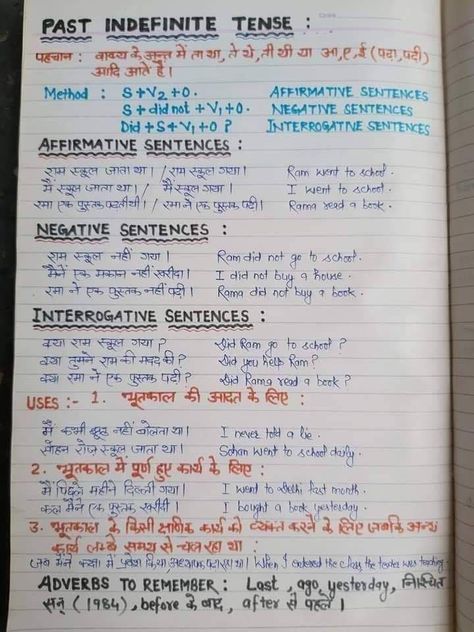 PAST INDEFINITE TENSE :
पहचान : वाक्य के अन्त में ता था, ते थे, ती थी या आ, ए, ई (पढ़ा, पढ़ी)
आदि आते हैं।
Method : S+V2+O. AFFIRMATIVE SENTENCES
S + did not + V1 + O. NEGATIVE SENTENCES
Did + S + V1 + O ? INTERROGATIVE SENTENCES
AFFIRMATIVE SENTENCES :
राम स्कूल जाता था। / राम स्कूल गया। Ram went to school.
मैं स्कूल जाता था। / मैं स्कूल गया। I went to school.
रमा एक पुस्तक पढ़ती थी। / रमा ने एक पुस्तक पढ़ी। Rama read a book.
NEGATIVE SENTENCES :
राम स्कूल नहीं गया। Ram did not go to school.
मैंने एक मकान नहीं खरीदा। I did not buy a house.
रमा ने एक पुस्तक नहीं पढ़ी। Rama did not buy a book.
INTERROGATIVE SENTENCES :
क्या राम स्कूल गया? Did Ram go to school?
क्या तुमने राम की मदद की? Did you help Ram?
क्या रमा ने एक पुस्तक पढ़ी? Did Rama read a book?
USES :- 1. भूतकाल की आदत के लिए :
मैं कभी झूठ नहीं बोलता था। I never told a lie.
सोहन रोज स्कूल जाता था। Sohan went to school daily.
2. भूतकाल में पूर्ण हुए कार्य के लिए :
मैं पिछले महीने दिल्ली गया। I went to Delhi last month.
कल मैंने एक पुस्तक खरीदी। I bought a book yesterday.
3. भूतकाल के किसी क्षणिक कार्य को व्यक्त करने के लिए जबकि अन्य
कार्य लम्बे समय से चल रहा था :
जब मैंने कक्षा में प्रवेश किया When I entered the class, the teacher was teaching.
ADVERBS TO REMEMBER : Last, ago, yesterday, निश्चित
सन् (1984), before के बाद, after से पहले।